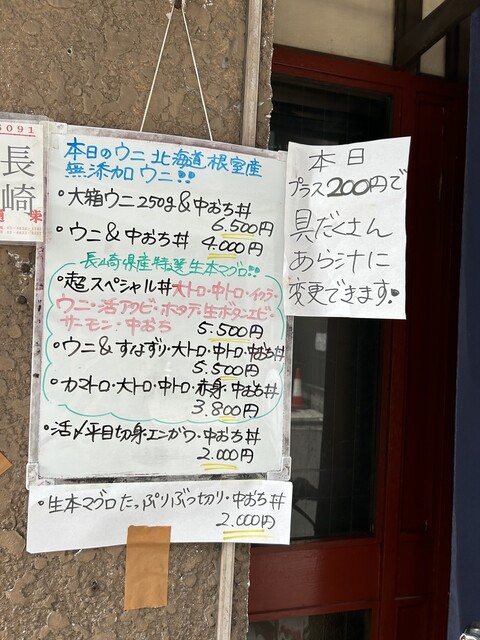 5091
長
崎
本日のウニ 北海道 根室産
無添加ウニ!!
・大箱ウニ250g&中おち丼
6.500円
・ウニ&中おち丼
4.000円
長崎県産特選生本マグロ!!
・超スペシャル丼 大トロ・中トロ・イクラ・
ウニ・活アワビ・ホタテ・生ボタンエビ・
サーモン・中おち
5.500円
・ウニ&すなずり・大トロ・中トロ・中おち丼
5.500円
・カマトロ・大トロ・中トロ・赤身・中おち丼
3.800円
・活〆平目切身・エンガワ・中おち丼
2.000円
・生本マグロたっぷりぶつ切り・中おち丼
2.000円
本日
プラス200円で
具だくさん
あら汁に
変更できます。